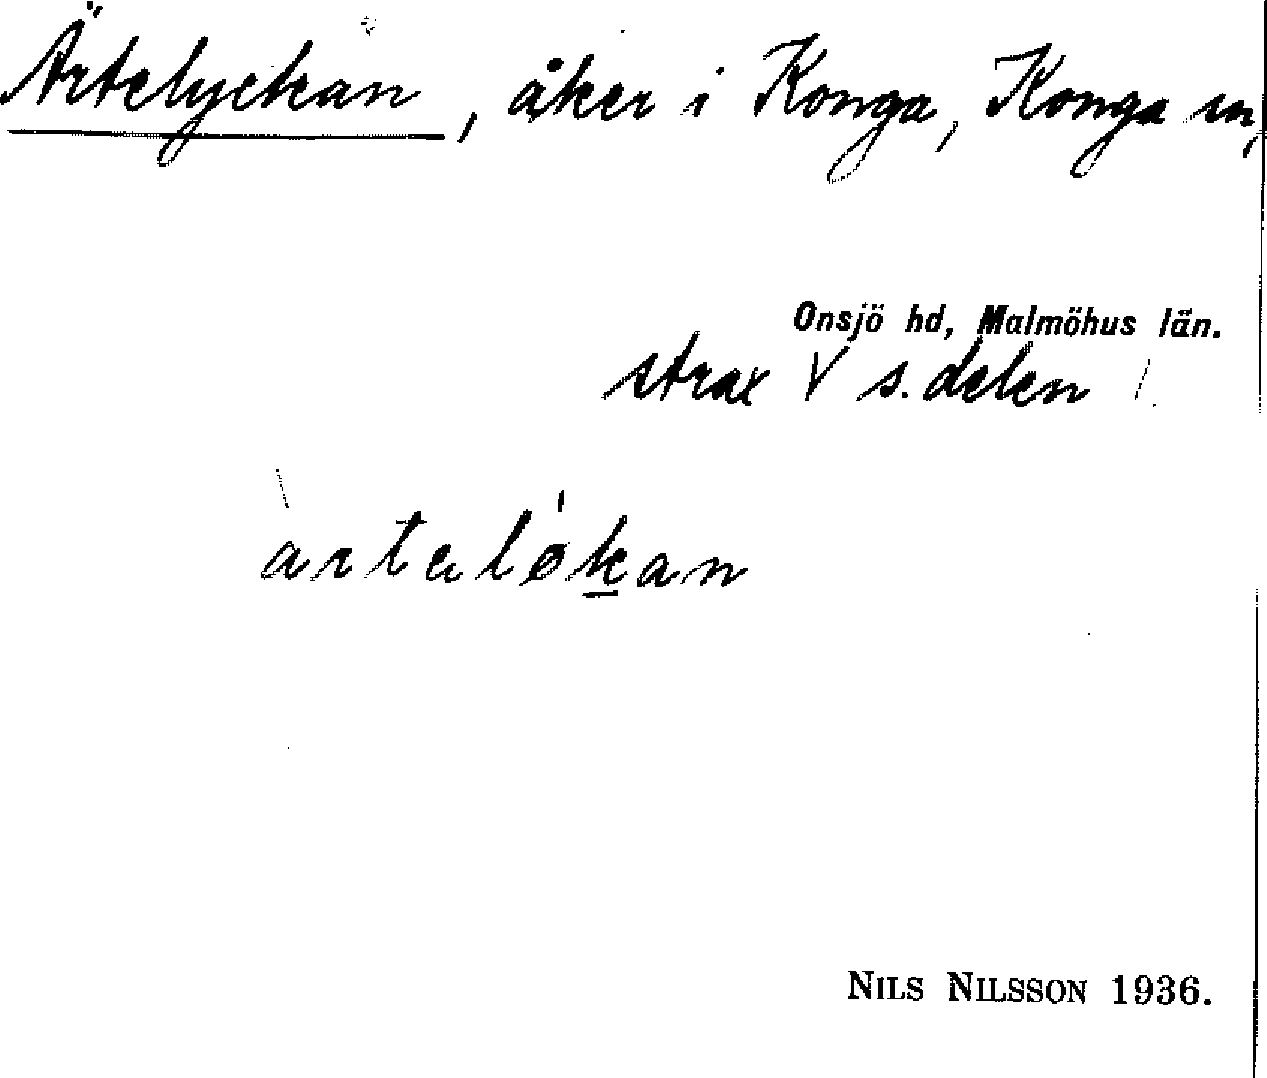 Ärtelyckan, åker i Konga, Konga sn,
Onsjö hd, Malmöhus län.
strax V s. delen
artaløkan
NILS NILSSON 1936.